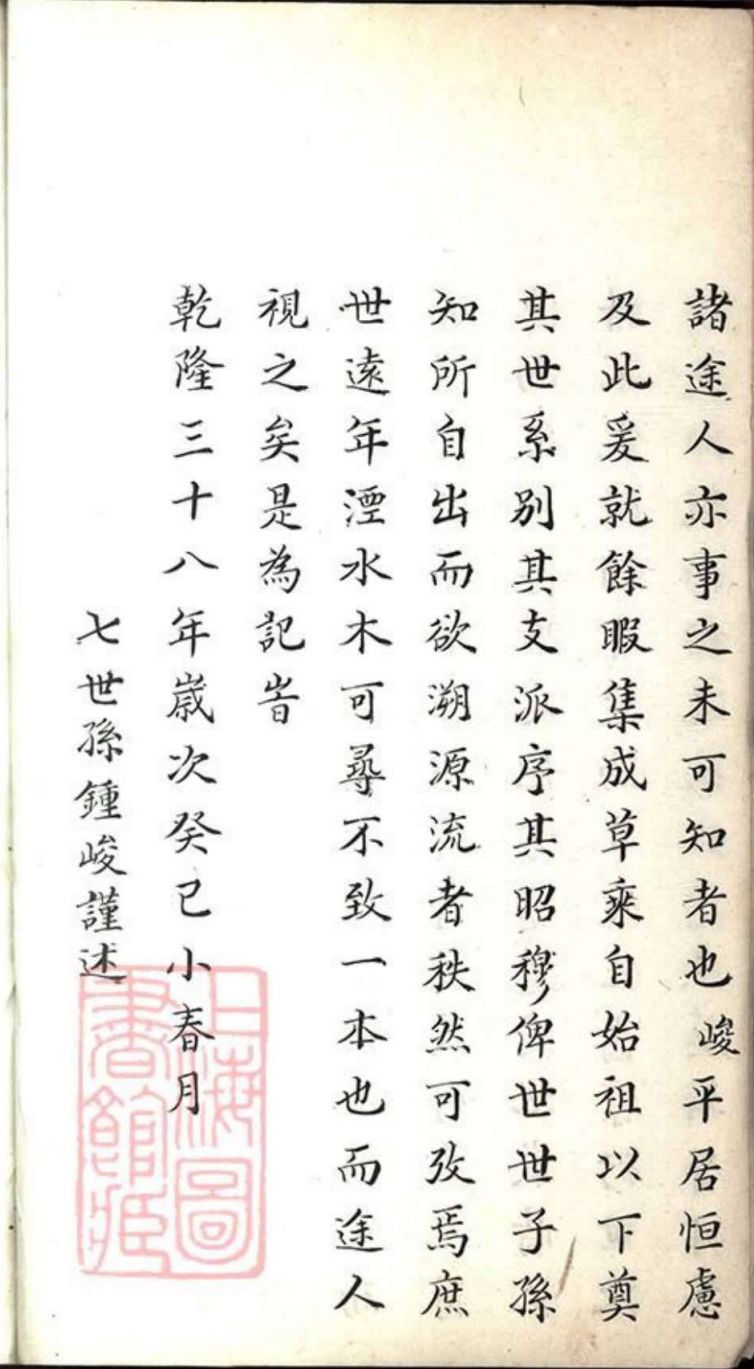 諸途人亦事之未可知者也峻平居恒慮
及此爰就餘暇集成草乘自始祖以下奠
其世系別其支派序其昭穆俾世世子孫
知所自出而欲溯源流者秩然可攷焉庶
世遠年湮水木可尋不致一本也而途人
視之矣是為記旹
乾隆三十八年歲次癸巳小春月
七世孫鍾峻謹述
上海圖
書館藏